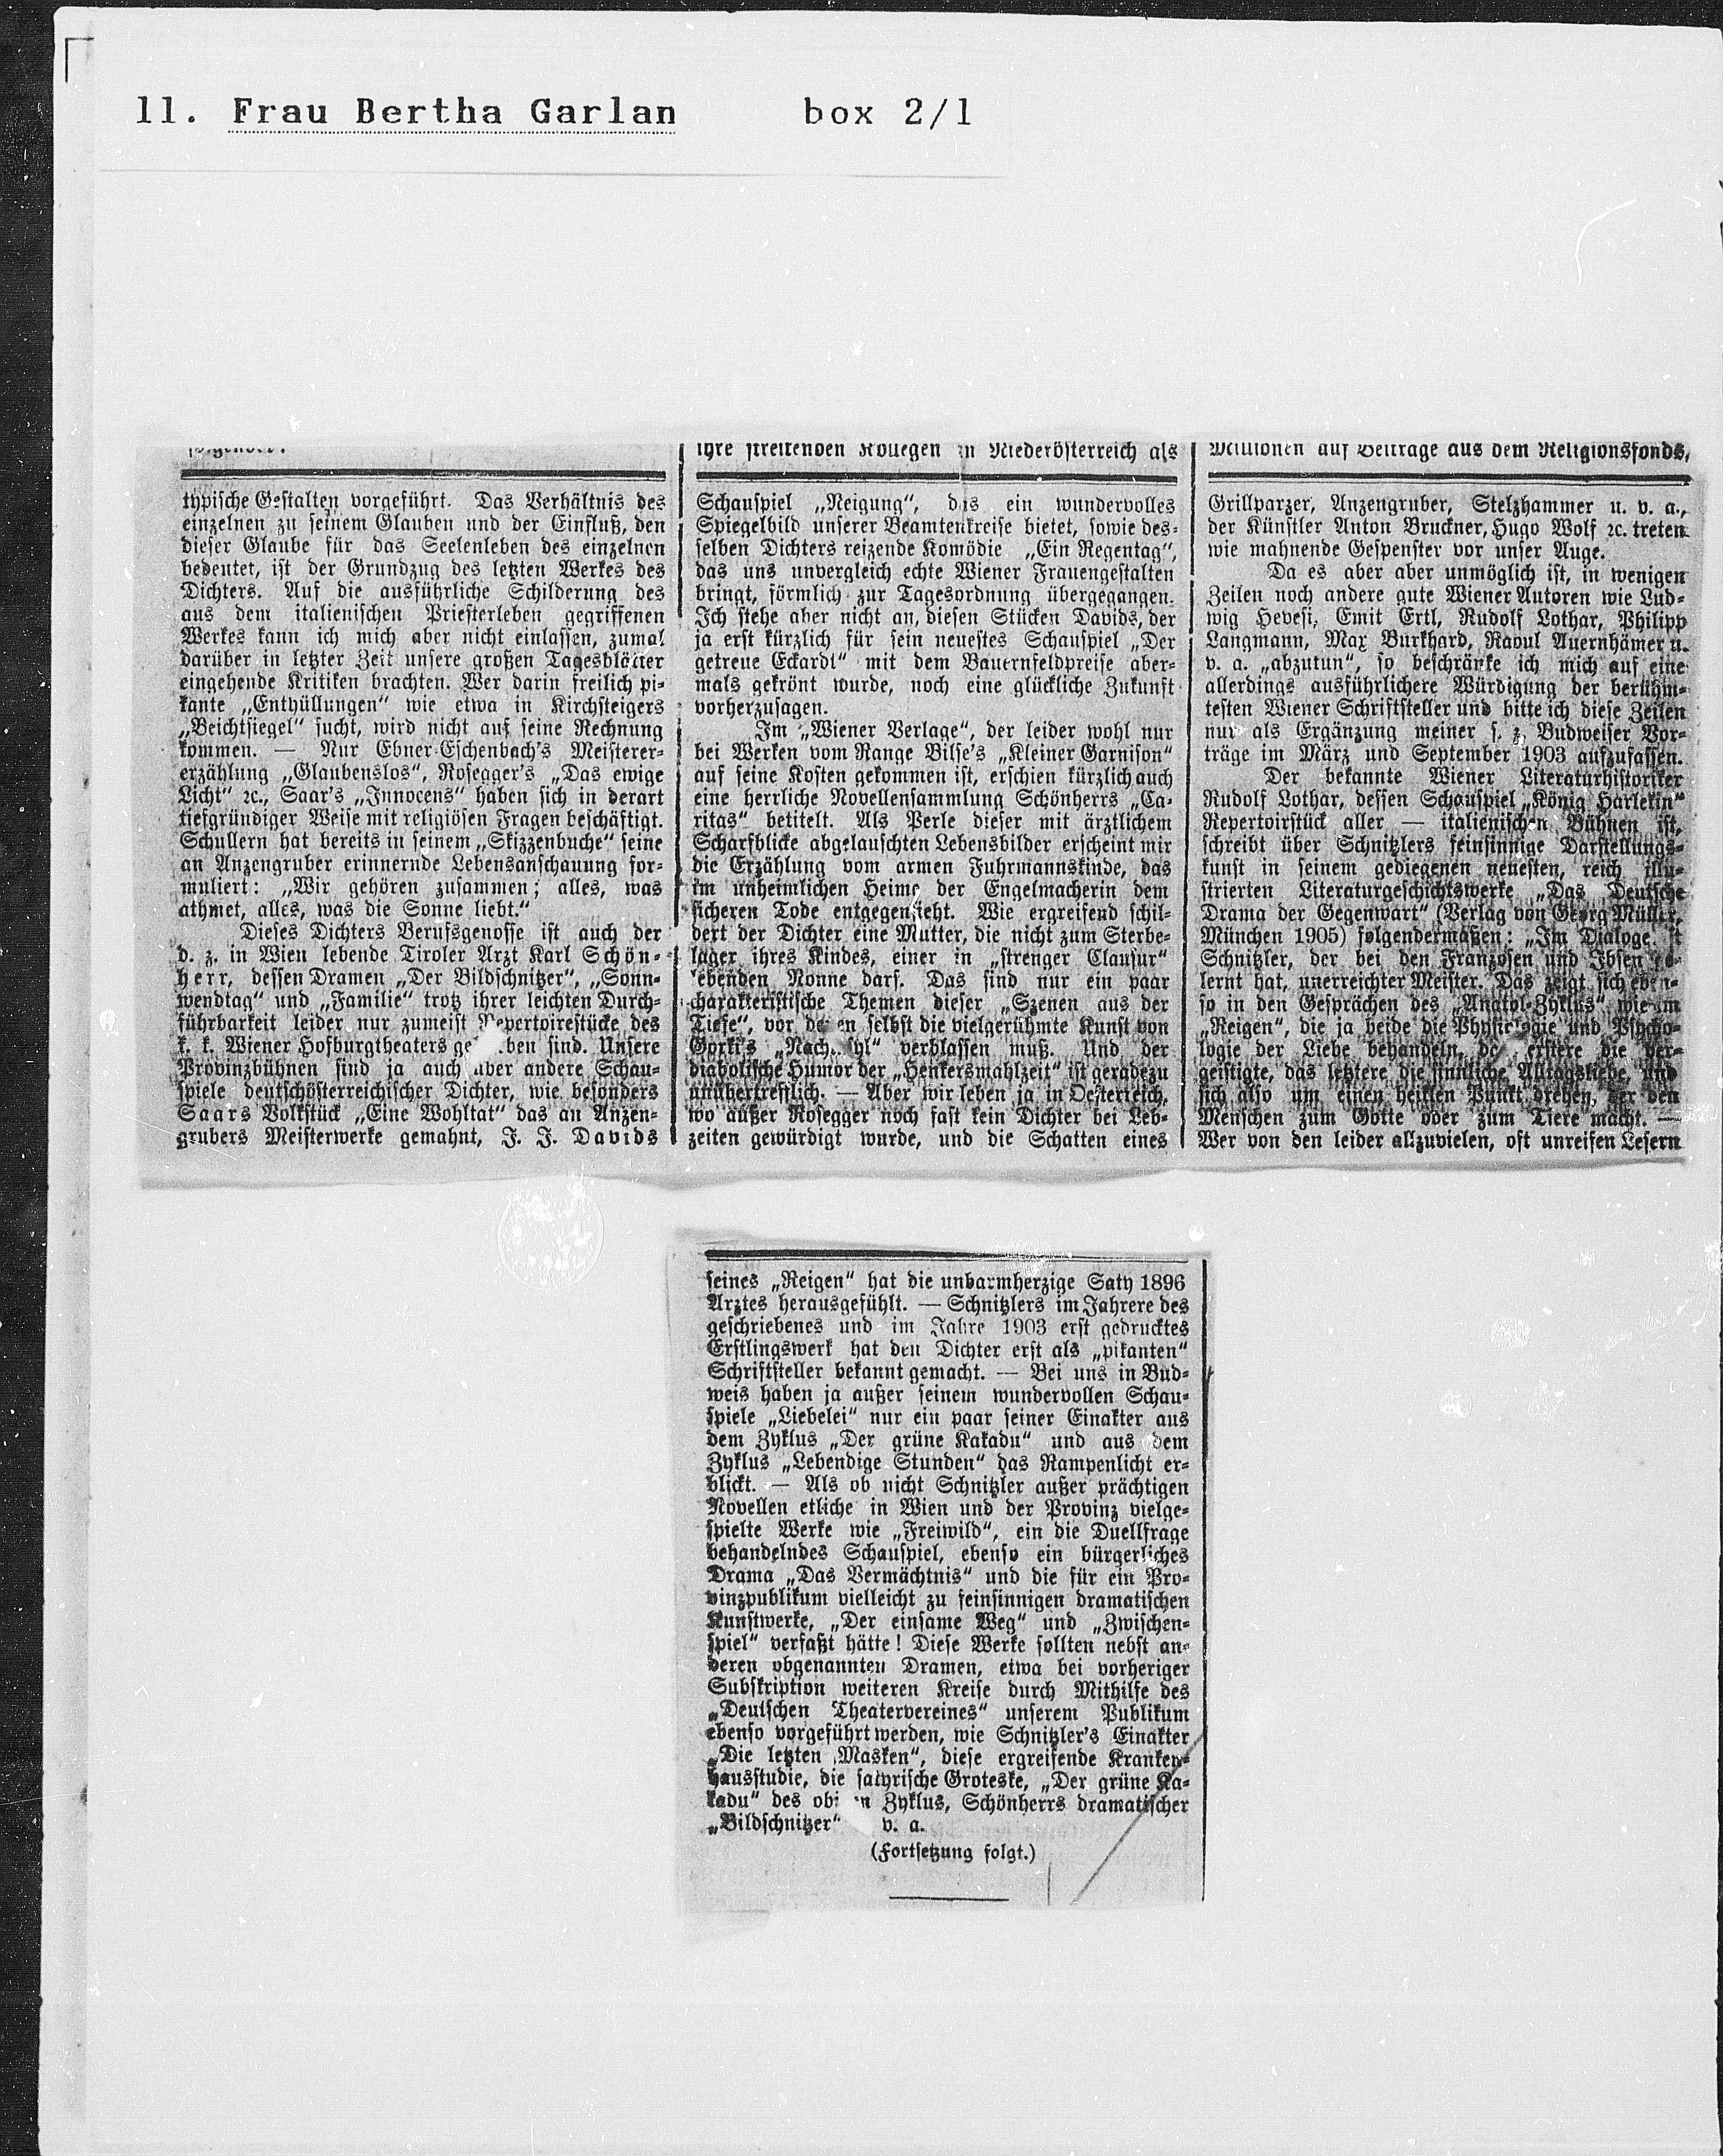 11. Frau Bertha Garlan box 2/1
typische Gestalten vorgeführt. Das Verhältnis des
einzelnen zu seinem Glauben und der Einfluß, den
dieser Glaube für das Seelenleben des einzelnen
bedeutet, ist der Grundzug des letzten Werkes des
Dichters. Auf die ausführliche Schilderung des
aus dem italienischen Priesterleben gegriffenen
Werkes kann ich mich aber nicht einlassen, zumal
darüber in letzter Zeit unsere großen Tagesblätter
eingehende Kritiken brachten. Wer darin freilich pi-
kante „Enthüllungen“ wie etwa in Kirchsteigers
„Beichtsiegel“ sucht, wird nicht auf seine Rechnung
kommen. — Nur Ebner-Eschenbach's Meisterer-
erzählung „Glaubenslos“, Rosegger's „Das ewige
Licht“ ꝛc., Saar's „Innocens“ haben sich in derart
tiefgründiger Weise mit religiösen Fragen beschäftigt.
Schullern hat bereits in seinem „Skizzenbuche“ seine
an Anzengruber erinnernde Lebensanschauung for-
muliert: „Wir gehören zusammen; alles, was
athmet, alles, was die Sonne liebt.“
Dieses Dichters Berufsgenosse ist auch der
d. z. in Wien lebende Tiroler Arzt Karl Schön-
herr, dessen Dramen „Der Bildschnitzer“, „Sonn-
wendtag“ und „Familie“ trotz ihrer leichten Durch-
führbarkeit leider nur zumeist Repertoirestücke des
k. k. Wiener Hofburgtheaters sind. Unsere
Provinzbühnen sind ja auch über andere Schau-
spiele deutschösterreichischer Dichter, wie besonders
Saars Volkstück „Eine Wohltat“ das an Anzen-
grubers Meisterwerke gemahnt, J. J. Davids
ihre streikenden Kollegen in Niederösterreich als
Schauspiel „Neigung“, das ein wundervolles
Spiegelbild unserer Beamtenkreise bietet, sowie des-
selben Dichters reizende Komödie „Ein Regentag“,
das uns unvergleich echte Wiener Frauengestalten
bringt, förmlich zur Tagesordnung übergegangen.
Ich stehe aber nicht an, diesen Stücken Davids, der
ja erst kürzlich für sein neuestes Schauspiel „Der
getreue Eckardt“ mit dem Bauernfeldpreise aber-
mals gekrönt wurde, noch eine glückliche Zukunft
vorherzusagen.
Im „Wiener Verlage“, der leider wohl nur
bei Werken vom Range Bilse's „Kleiner Garnison“
auf seine Kosten gekommen ist, erschien kürzlich auch
eine herrliche Novellensammlung Schönherrs „Ca-
ritas“ betitelt. Als Perle dieser mit ärztlichem
Scharfblicke abgelauschten Lebensbilder erscheint mir
die Erzählung vom armen Fuhrmannskinde, das
im unheimlichen Heime der Engelmacherin dem
sicheren Tode entgegensieht. Wie ergreifend schil-
dert der Dichter eine Mutter, die nicht zum Sterbe-
lager ihres Kindes, einer in „strenger Clausur“
lebenden Nonne darf. Das sind nur ein paar
charakteristische Themen dieser „Szenen aus der
Tiefe“, vor denen selbst die vielgerühmte Kunst von
Gorki's verblassen muß. Und der
diabolische Humor der „Henkersmahlzeit“ ist geradezu
unübertrefflich. — Aber wir leben ja in Oesterreich,
wo außer Rosegger noch fast kein Dichter bei Leb-
zeiten gewürdigt wurde, und die Schatten eines
Millionen auf Beiträge aus dem Religionsfonds,
Grillparzer, Anzengruber, Stelzhammer u. v. a.,
der Künstler Anton Bruckner, Hugo Wolf ꝛc. treten
wie mahnende Gespenster vor unser Auge.
Da es aber aber unmöglich ist, in wenigen
Zeilen noch andere gute Wiener Autoren wie Lud-
wig Hevesi, Emit Ertl, Rudolf Lothar, Philipp
Langmann, Max Burkhard, Raoul Auernhämer u.
v. a. „abzutun“, so beschränke ich mich auf eine
allerdings ausführlichere Würdigung der berühm-
testen Wiener Schriftsteller und bitte ich diese Zeilen
nur als Ergänzung meiner s. z. Budweiser Vor-
träge im März und September 1903 aufzufassen.
Der bekannte Wiener Literaturhistoriker
Rudolf Lothar, dessen Schauspiel „König Harlekin“
Repertoirstück aller — italienischen Bühnen ist,
schreibt über Schnitzlers feinsinnige Darstellungs-
kunst in seinem gediegenen neuesten, reich illu-
strierten Literaturgeschichtswerke „Das Deutsche
Drama der Gegenwart“ (Verlag von Georg Müller,
München 1905) folgendermaßen: „Im Dialoge ist
Schnitzler, der bei den Franzosen und Ibsen ge-
lernt hat, unerreichter Meister. Das zeigt sich eben-
so in den Gesprächen des „Anatol-Zyklus“ wie im
„Reigen“, die ja beide die Physiologie und Psycho-
logie der Liebe behandeln, erstere die ver-
geistigte, das letztere die sinnliche Alltagsliebe, und
sich also um einen heiklen Punkt drehen, der den
Menschen zum Gotte oder zum Tiere macht. —
Wer von den leider allzuvielen, oft unreifen Lesern
seines „Reigen“ hat die unbarmherzige Saty 1896
Arztes herausgefühlt. — Schnitzlers im Jahrere des
geschriebenes und im Jahre 1903 erst gedrucktes
Erstlingswerk hat den Dichter erst als „pikanten“
Schriftsteller bekannt gemacht. — Bei uns in Bud-
weis haben ja außer seinem wundervollen Schau-
spiele „Liebelei“ nur ein paar seiner Einakter aus
dem Zyklus „Der grüne Kakadu“ und aus dem
Zyklus „Lebendige Stunden“ das Rampenlicht er-
blickt. — Als ob nicht Schnitzler außer prächtigen
Novellen etliche in Wien und der Provinz vielge-
spielte Werke wie „Freiwild“, ein die Duellfrage
behandelndes Schauspiel, ebenso ein bürgerliches
Drama „Das Vermächtnis“ und die für ein Pro-
vinzpublikum vielleicht zu feinsinnigen dramatischen
Kunstwerke, „Der einsame Weg“ und „Zwischen-
spiel“ verfaßt hätte! Diese Werke sollten nebst an-
deren obgenannten Dramen, etwa bei vorheriger
Subskription weiteren Kreise durch Mithilfe des
„Deutschen Theatervereines“ unserem Publikum
ebenso vorgeführt werden, wie Schnitzler's Einakter
„Die letzten Masken“, diese ergreifende Kranken-
hausstudie, die satyrische Groteske, „Der grüne Ka-
kadu“ des Zyklus, Schönherrs dramatischer
„Bildschnitzer“ v. a.
(Fortsetzung folgt.)